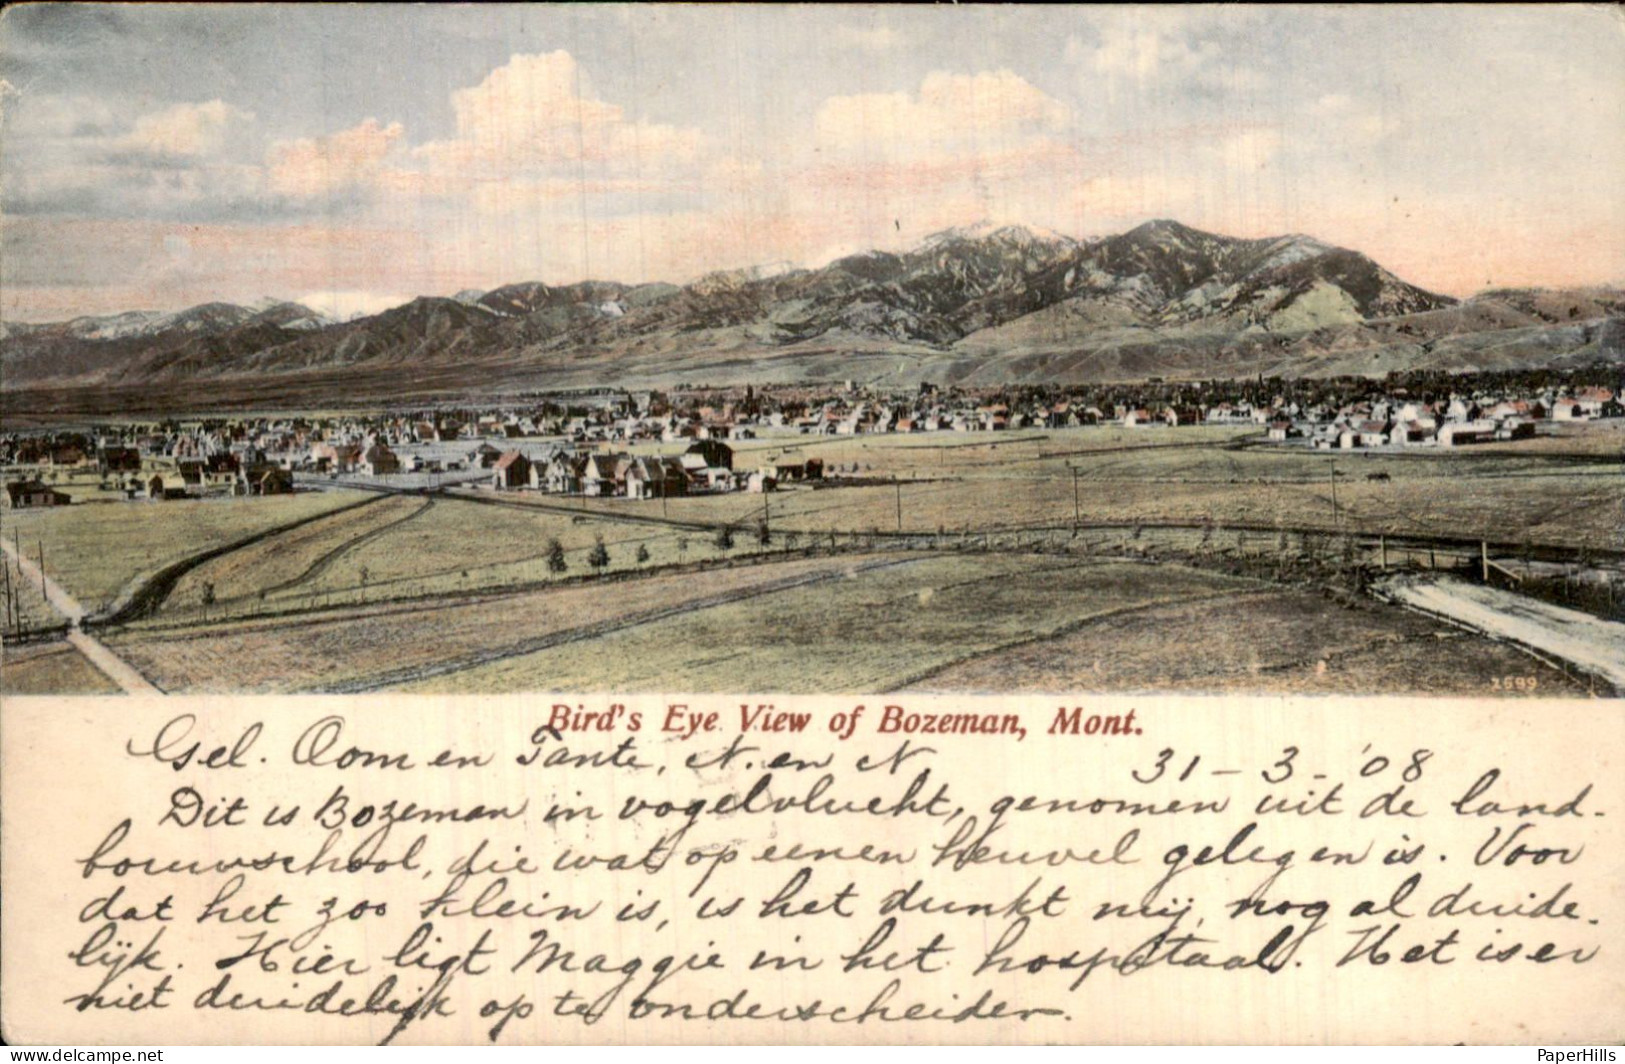 2599
Bird's Eye View of Bozeman, Mont.
Gel. Oom en Tante, N. en N. 31-3-'08
Dit is Bozeman in vogelvlucht, genomen uit de land-
bouwschool, die wat op eenen heuvel gelegen is. Voor
dat het zoo klein is, is het dunkt mij, nog al duide-
lijk. Hier ligt Maggie in het hospitaal. Het is er
niet duidelijk op te onderscheiden.
PaperHills
www.delcampe.net